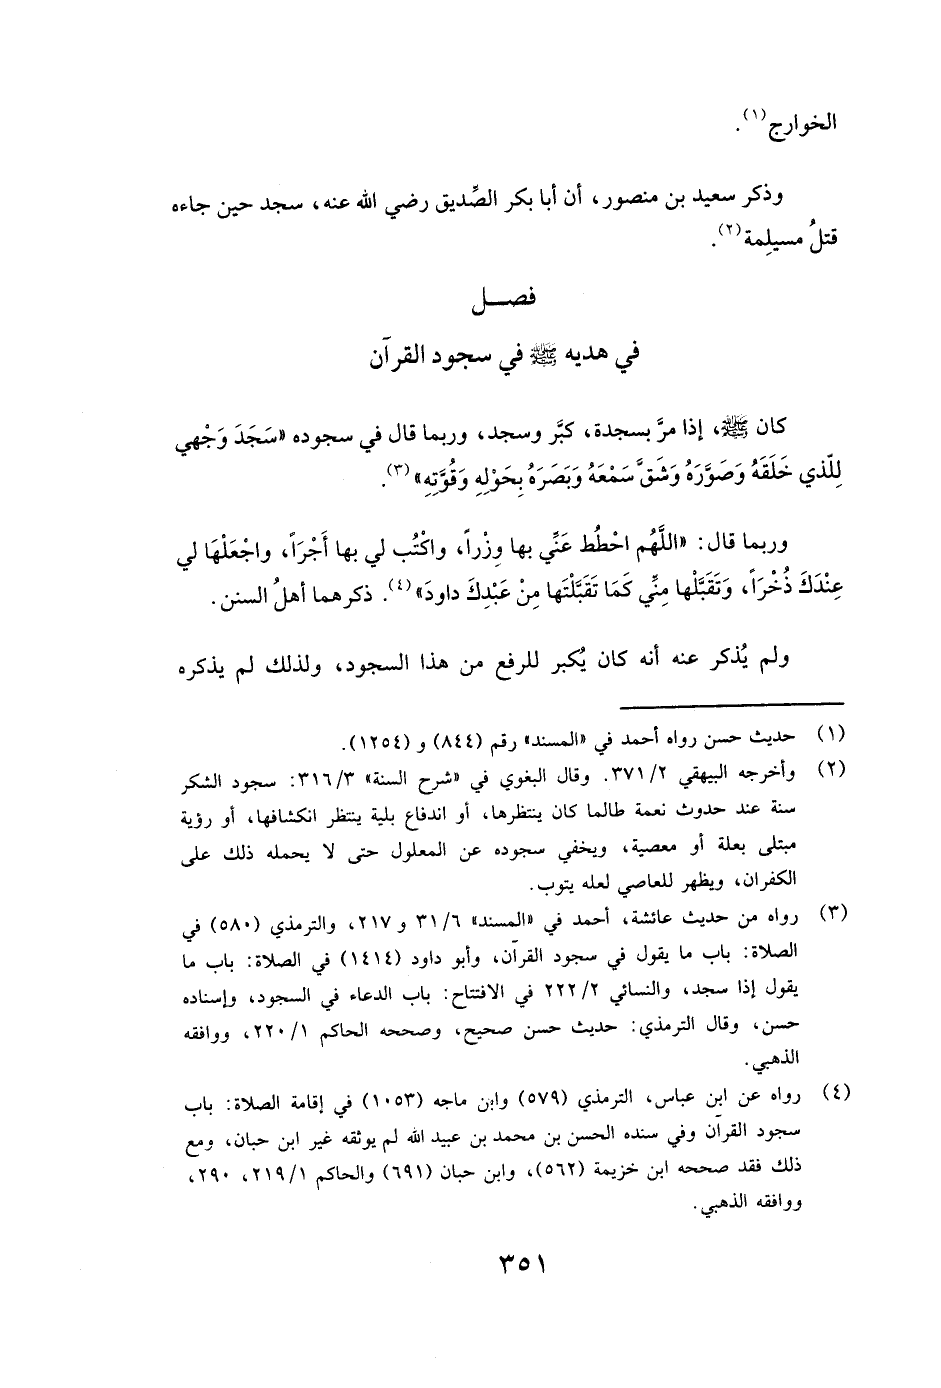 الخوارج(١).
وذكر سعيد بن منصور، أن أبا بكر الصِّديق رضي الله عنه، سجد حين جاءه
قتلُ مسيلِمة(٢).
فصـــل
في هديه ﷺ في سجود القرآن
كان ﷺ، إذا مرَّ بسجدة، كبَّر وسجد، وربما قال في سجوده «سَجَدَ وَجْهي
لِلَّذي خَلَقَهُ وَصَوَّرَهُ وَشَقَّ سَمْعَهُ وَبَصَرَهُ بِحَوْلِهِ وَقُوَّتِهِ»(٣).
وربما قال: «اللَّهُم احْطُط عَنِّي بها وِزْراً، واكْتُب لي بها أَجْرَاً، واجْعَلْهَا لي
عِنْدَكَ ذُخْرَاً، وَتَقَبَّلْها مِنِّي كَمَا تَقَبَّلْتَها مِنْ عَبْدِكَ داودَ»(٤). ذكرهما أهلُ السنن.
ولم يُذكر عنه أنه كان يُكبر للرفع من هذا السجود، ولذلك لم يذكره
(١) حديث حسن رواه أحمد في «المسند» رقم (٨٤٤) و (١٢٥٤).
(٢) وأخرجه البيهقي ٣٧١/٢. وقال البغوي في «شرح السنة» ٣١٦/٣: سجود الشكر
سنة عند حدوث نعمة طالما كان ينتظرها، أو اندفاع بلية ينتظر انكشافها، أو رؤية
مبتلى بعلة أو معصية، ويخفي سجوده عن المعلول حتى لا يحمله ذلك على
الكفران، ويظهر للعاصي لعله يتوب.
(٣) رواه من حديث عائشة، أحمد في «المسند» ٣١/٦ و ٢١٧، والترمذي (٥٨٠) في
الصلاة: باب ما يقول في سجود القرآن، وأبو داود (١٤١٤) في الصلاة: باب ما
يقول إذا سجد، والنسائي ٢٢٢/٢ في الافتتاح: باب الدعاء في السجود، وإسناده
حسن، وقال الترمذي: حديث حسن صحيح، وصححه الحاكم ٢٢٠/١، ووافقه
الذهبي.
(٤) رواه عن ابن عباس، الترمذي (٥٧٩) وابن ماجه (١٠٥٣) في إقامة الصلاة: باب
سجود القرآن وفي سنده الحسن بن محمد بن عبيد الله لم يوثقه غير ابن حبان، ومع
ذلك فقد صححه ابن خزيمة (٥٦٢)، وابن حبان (٦٩١) والحاكم ٢١٩/١، ٢٩٠،
ووافقه الذهبي.
٣٥١